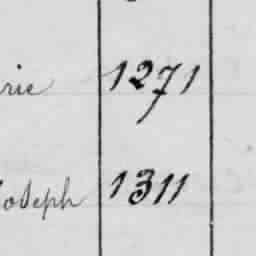 rie 1271
Joseph 1311